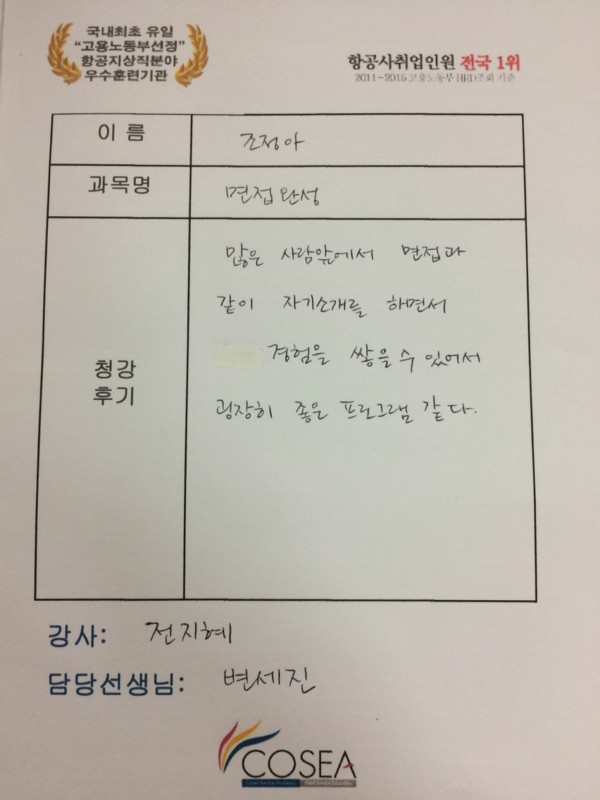 국내최초 유일
"고용노동부선정"
항공지상직분야
우수훈련기관
항공사취업인원 전국 1위
2011~2015 고용노동부 HRD조회 기준
이 름
조정아
과목명
면접완성
청강
후기
많은 사람앞에서 면접과
같이 자기소개를 하면서
경험을 쌓을수 있어서
굉장히 좋은 프로그램 같다.
강사: 전지혜
담당선생님: 변세진
COSEA